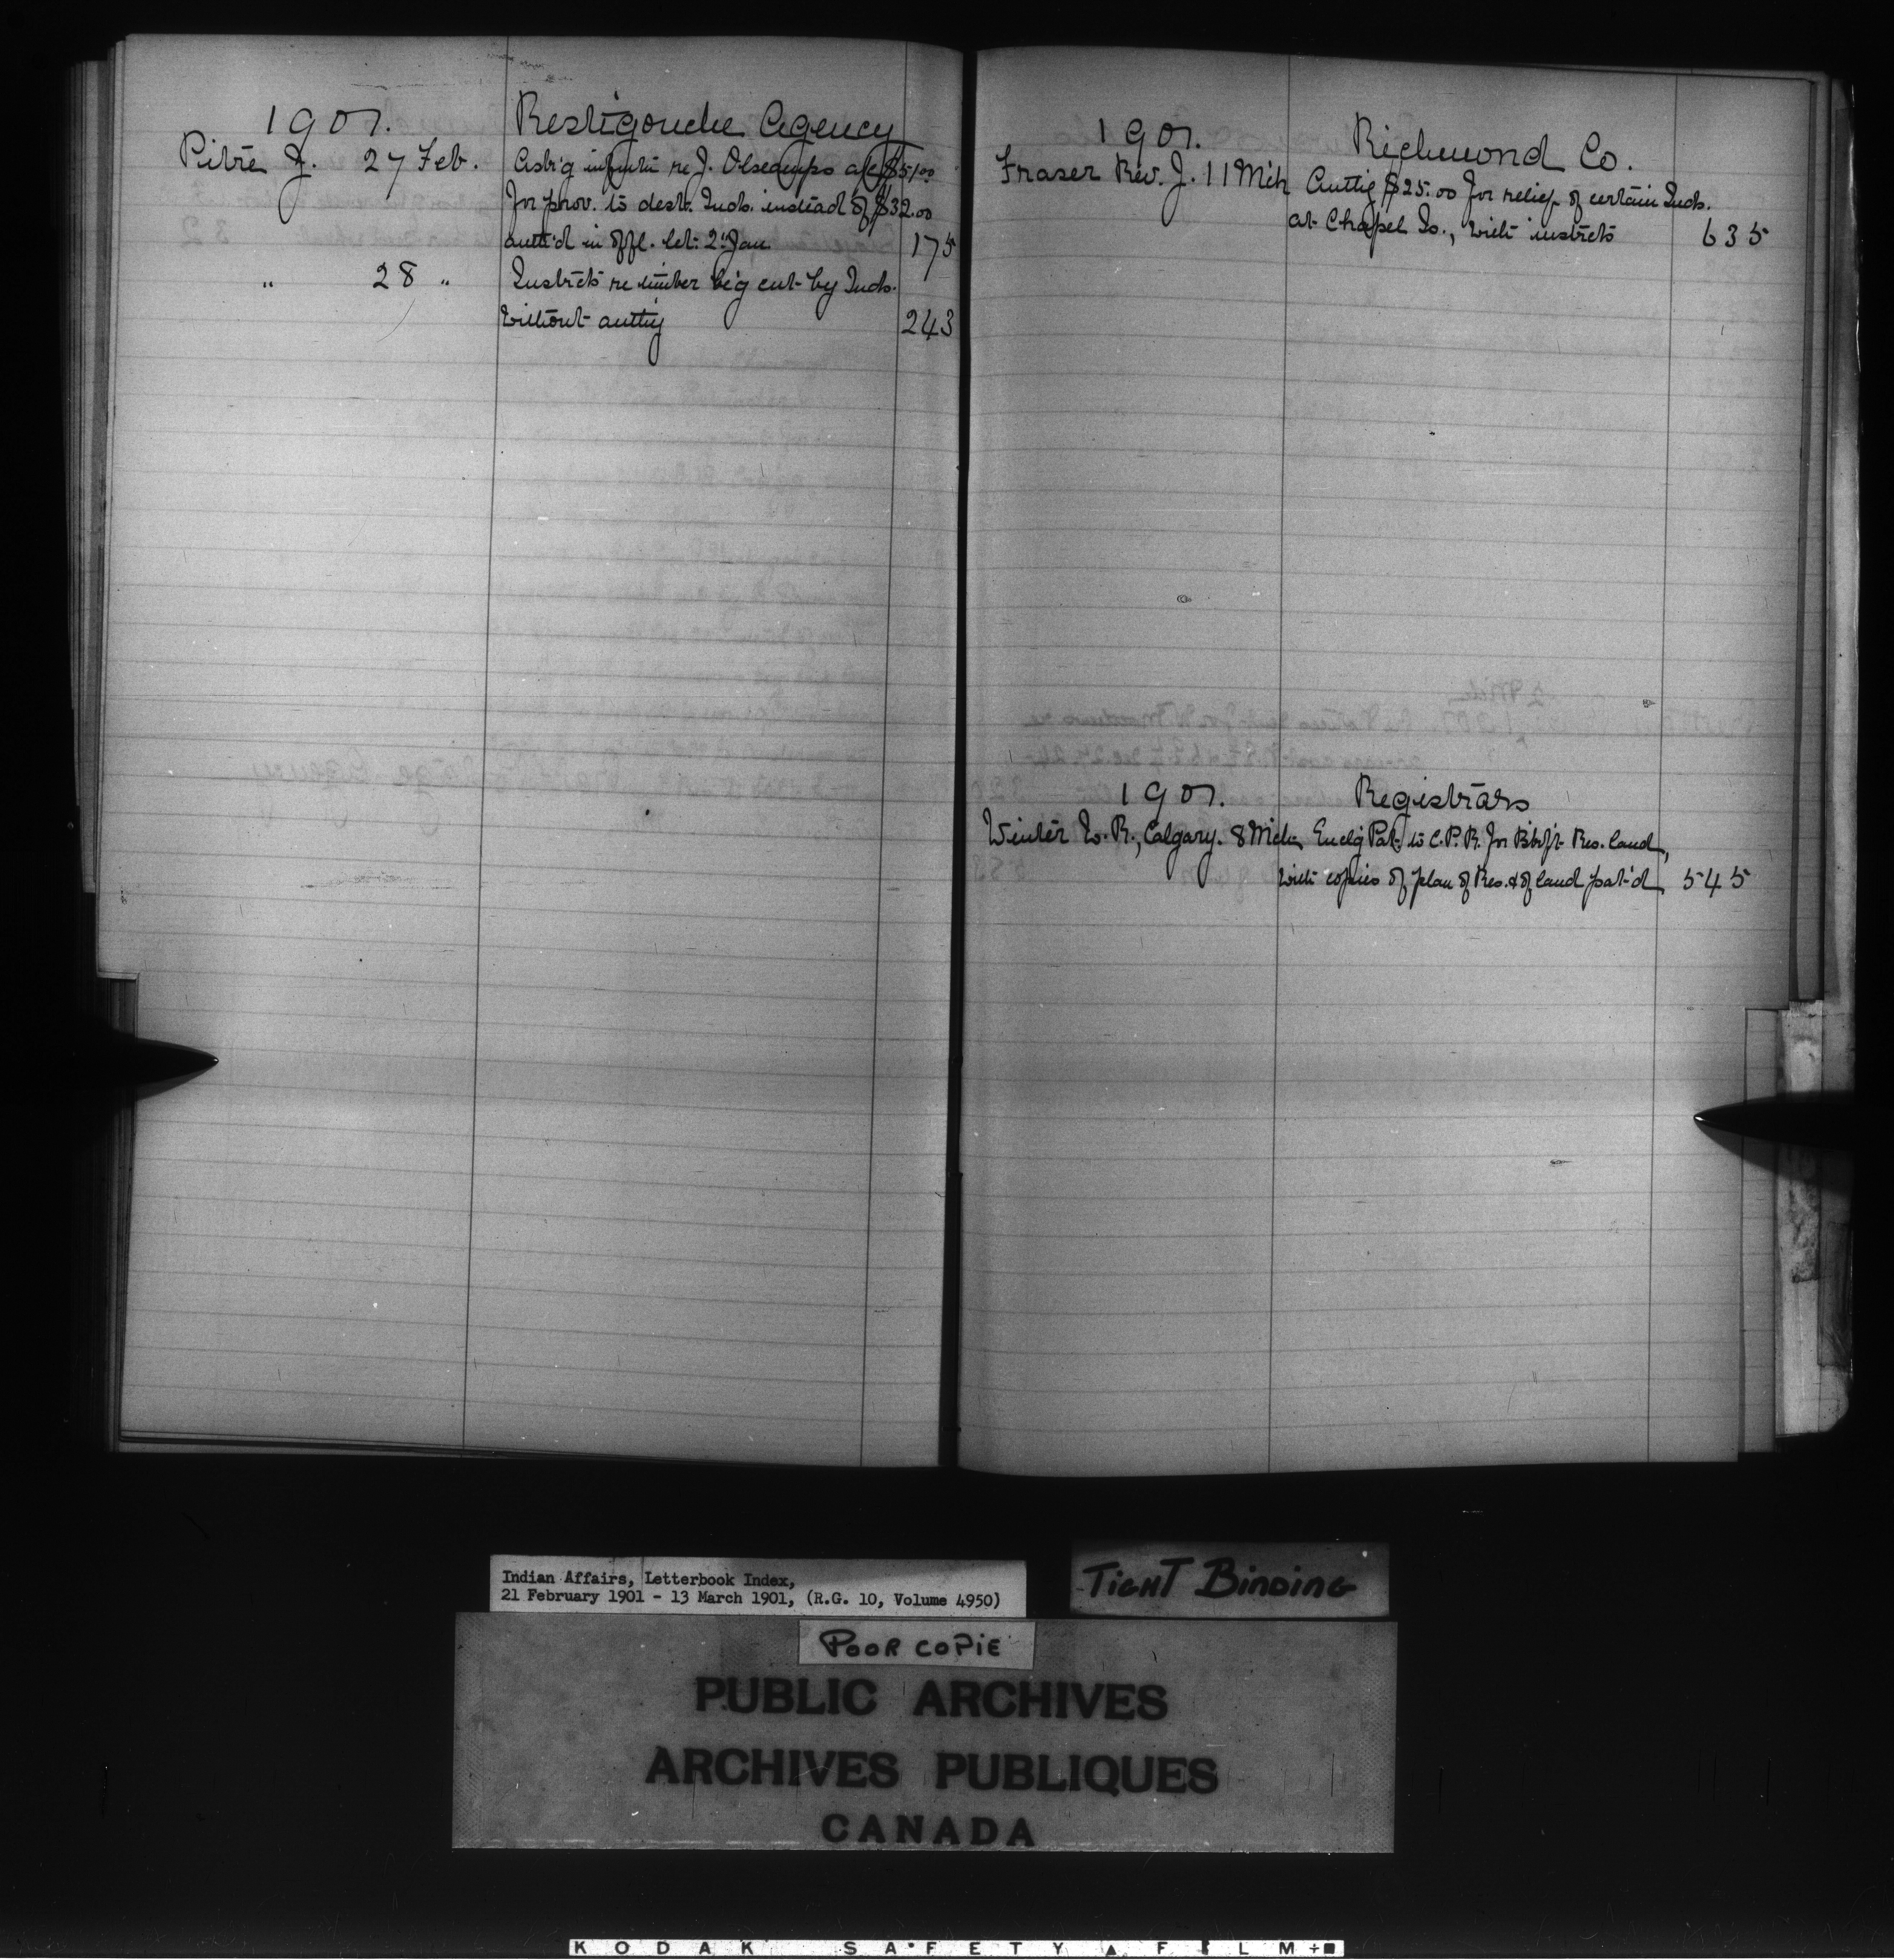 1901. Restigouche Agency
Pitre J. 27 Feb. Ask'g inform re J. Olsecamps a/c $51.00
for prov. to dest. Inds. instead of $32.00
auth'd in offl. let. 2 Jan. 175
" 28 " Instrcts re timber b'g cut by Inds.
without authy 243
1901. Richmond Co.
Fraser Rev. J. 11 Mch Authg $25.00 for relief of certain Inds.
at Chapel Is., with instrcts 635
1901. Registrars
Winter W. R., Calgary. 8 Mch Enclg Pat. to C.P.R. for Blkft Res. land,
with copies of plan of Res. & of land pat'd 545
Indian Affairs, Letterbook Index,
21 February 1901 - 13 March 1901, (R.G. 10, Volume 4950)
TIGHT BINDING
POOR COPIE
PUBLIC ARCHIVES
ARCHIVES PUBLIQUES
CANADA
KODAK SAFETY FILM